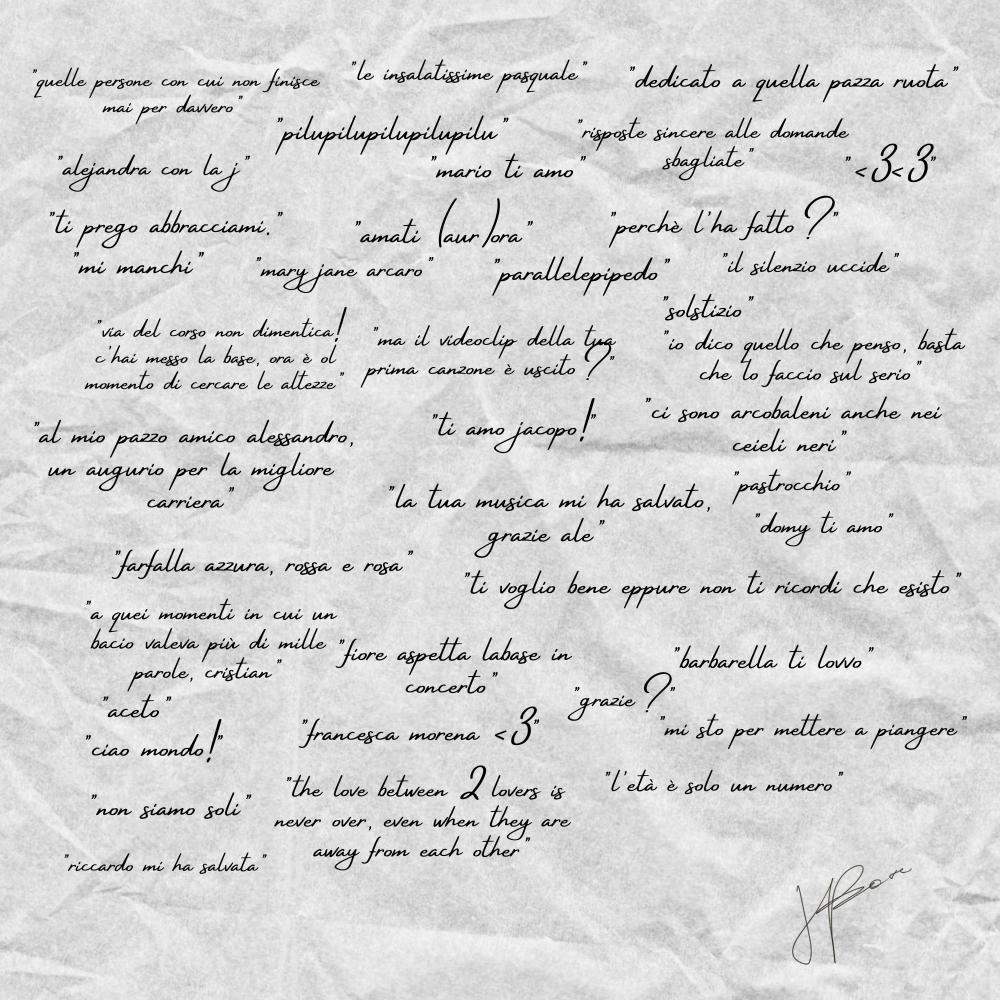 "quelle persone con cui non finisce
mai per davvero"
"le insalatissime pasquale"
"dedicato a quella pazza ruota"
"pilupilupilupilupilu"
"risposte sincere alle domande
sbagliate"
"<3<3"
"alejandra con la j"
"mario ti amo"
"ti prego abbracciami."
"amati (aur)ora"
"perchè l'ha fatto?"
"mi manchi"
"mary jane arcaro"
"parallelepipedo"
"il silenzio uccide"
"solstizio"
"via del corso non dimentica!
c'hai messo la base, ora è ol
momento di cercare le altezze"
"ma il videoclip della tua
prima canzone è uscito?"
"io dico quello che penso, basta
che lo faccio sul serio"
"al mio pazzo amico alessandro,
un augurio per la migliore
carriera"
"ti amo jacopo!"
"ci sono arcobaleni anche nei
ceieli neri"
"la tua musica mi ha salvato,
grazie ale"
"pastrocchio"
"domy ti amo"
"farfalla azzura, rossa e rosa"
"ti voglio bene eppure non ti ricordi che esisto"
"a quei momenti in cui un
bacio valeva più di mille
parole, cristian"
"fiore aspetta labase in
concerto"
"barbarella ti lovvo"
"grazie?"
"aceto"
"ciao mondo!"
"francesca morena <3"
"mi sto per mettere a piangere"
"non siamo soli"
"the love between 2 lovers is
never over, even when they are
away from each other"
"l'età è solo un numero"
"riccardo mi ha salvata"